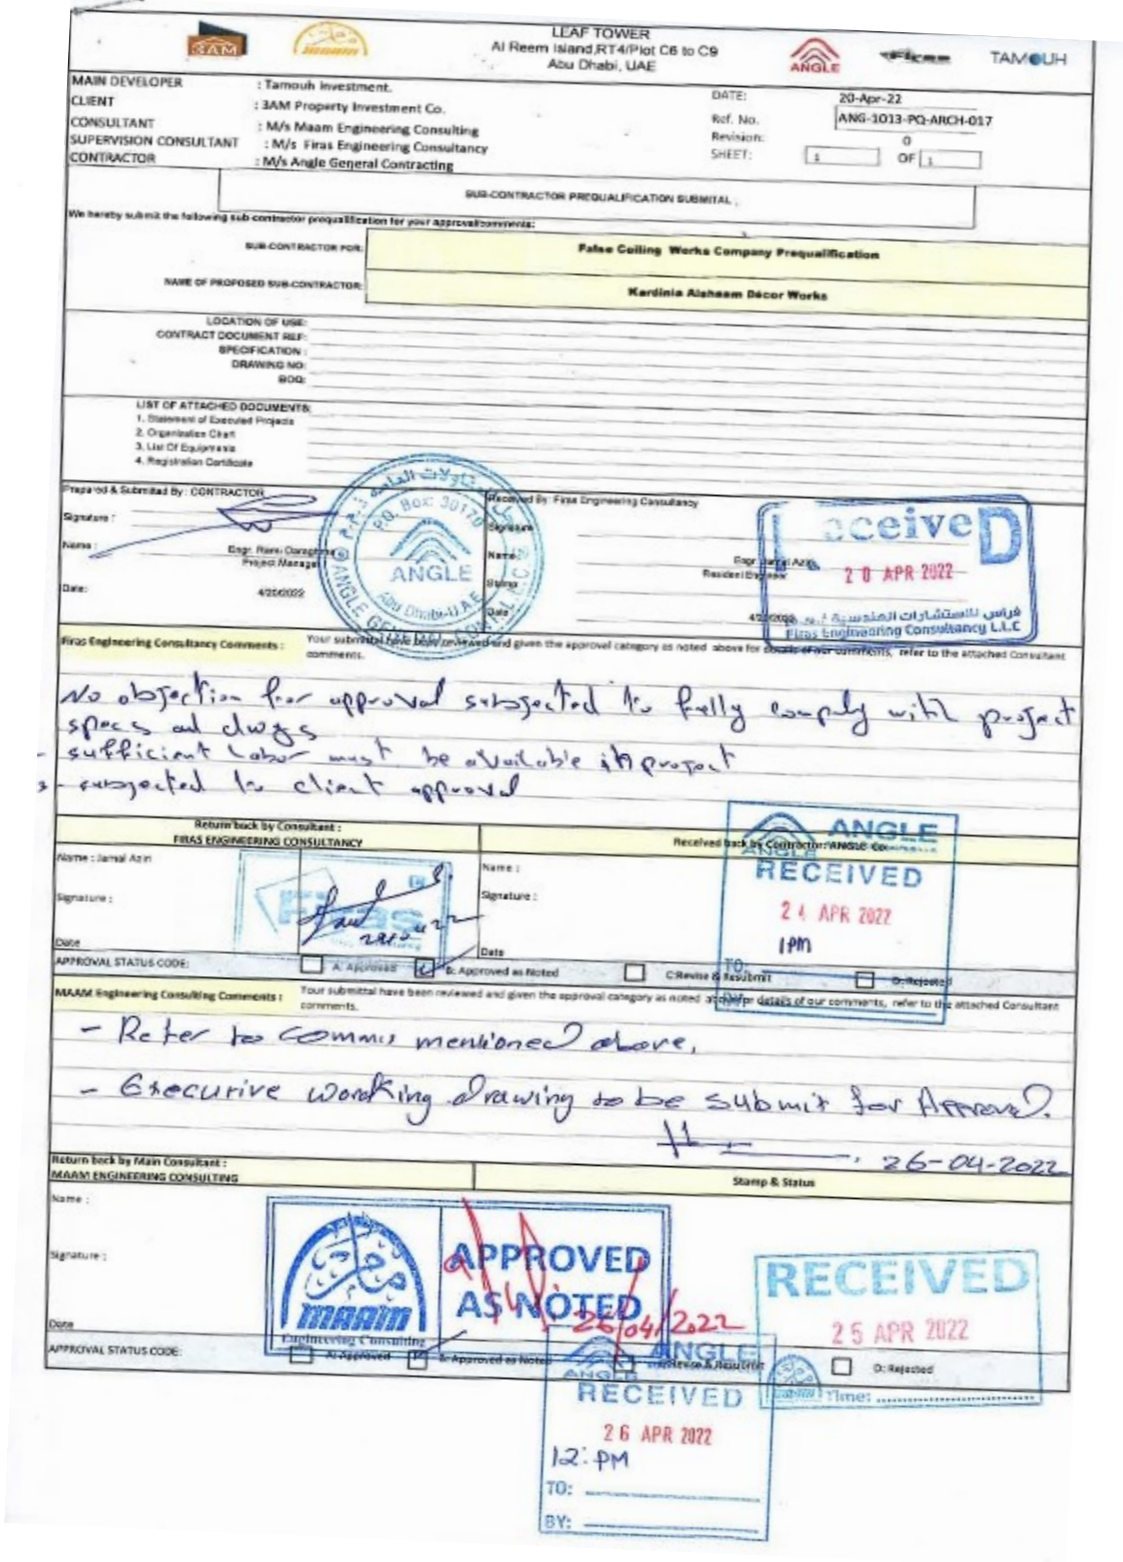 3AM
maam
LEAF TOWER
Al Reem Island,RT4/Plot C6 to C9
Abu Dhabi, UAE
ANGLE
TAMOUH
MAIN DEVELOPER : Tamouh Investment.
CLIENT : 3AM Property Investment Co.
CONSULTANT : M/s Maam Engineering Consulting
SUPERVISION CONSULTANT : M/s Firas Engineering Consultancy
CONTRACTOR : M/s Angle General Contracting
DATE: 20-Apr-22
Ref. No. ANG-1013-PQ-ARCH-017
Revision: 0
SHEET: 1 OF 1
SUB-CONTRACTOR PREQUALIFICATION SUBMITAL
We hereby submit the following sub-contractor prequalification for your approval/comments:
SUB-CONTRACTOR FOR: False Ceiling Works Company Prequalification
NAME OF PROPOSED SUB-CONTRACTOR: Kardinia Alshaam Décor Works
LOCATION OF USE:
CONTRACT DOCUMENT REF:
SPECIFICATION :
DRAWING NO:
BOQ:
LIST OF ATTACHED DOCUMENTS:
1. Statement of Executed Projects
2. Organization Chart
3. List Of Equipments
4. Registration Certificate
Prepared & Submitted By: CONTRACTOR
Signature :
Name :
Project Manager
Date: 4/20/2022
P.O. Box: 30170
ANGLE
Abu Dhabi-U.A.E
Received By: Firas Engineering Consultancy
Signature
Name
Engr. Jamal Azin
Resident Engineer
Stamp
Date
ReceiveD
20 APR 2022
فراس للاستشارات الهندسية
Firas Engineering Consultancy L.L.C
Firas Engineering Consultancy Comments : Your submittal have been reviewed and given the approval category as noted above for details of our comments, refer to the attached Consultant
comments.
No objection for approval subjected to fully comply with project
specs and dwgs
- sufficient Labor must be available in project
- subjected to client approval
Return back by Consultant :
FIRAS ENGINEERING CONSULTANCY
Name : Jamal Azin
Signature :
Date
Firas
Received back by Contractor: ANGLE Co.
Name :
Signature :
Date
ANGLE
ANGLE
RECEIVED
24 APR 2022
1PM
TO:
APPROVAL STATUS CODE: A: Approved B: Approved as Noted C:Revise & Resubmit D: Rejected
MAAM Engineering Consulting Comments : Your submittal have been reviewed and given the approval category as noted above for details of our comments, refer to the attached Consultant
comments.
- Refer to comms mentioned above.
- Execurive wordking drawing to be submit for Approval.
26-04-2022
Return back by Main Consultant :
MAAM ENGINEERING CONSULTING
Stamp & Status
Name :
Signature :
Date
maam
Engineering Consulting
APPROVED
AS NOTED
26/04/2022
RECEIVED
25 APR 2022
Time:
APPROVAL STATUS CODE: A: Approved B: Approved as Noted C:Revise & Resubmit D: Rejected
ANGLE
ANGLE
RECEIVED
26 APR 2022
12:PM
TO:
BY: